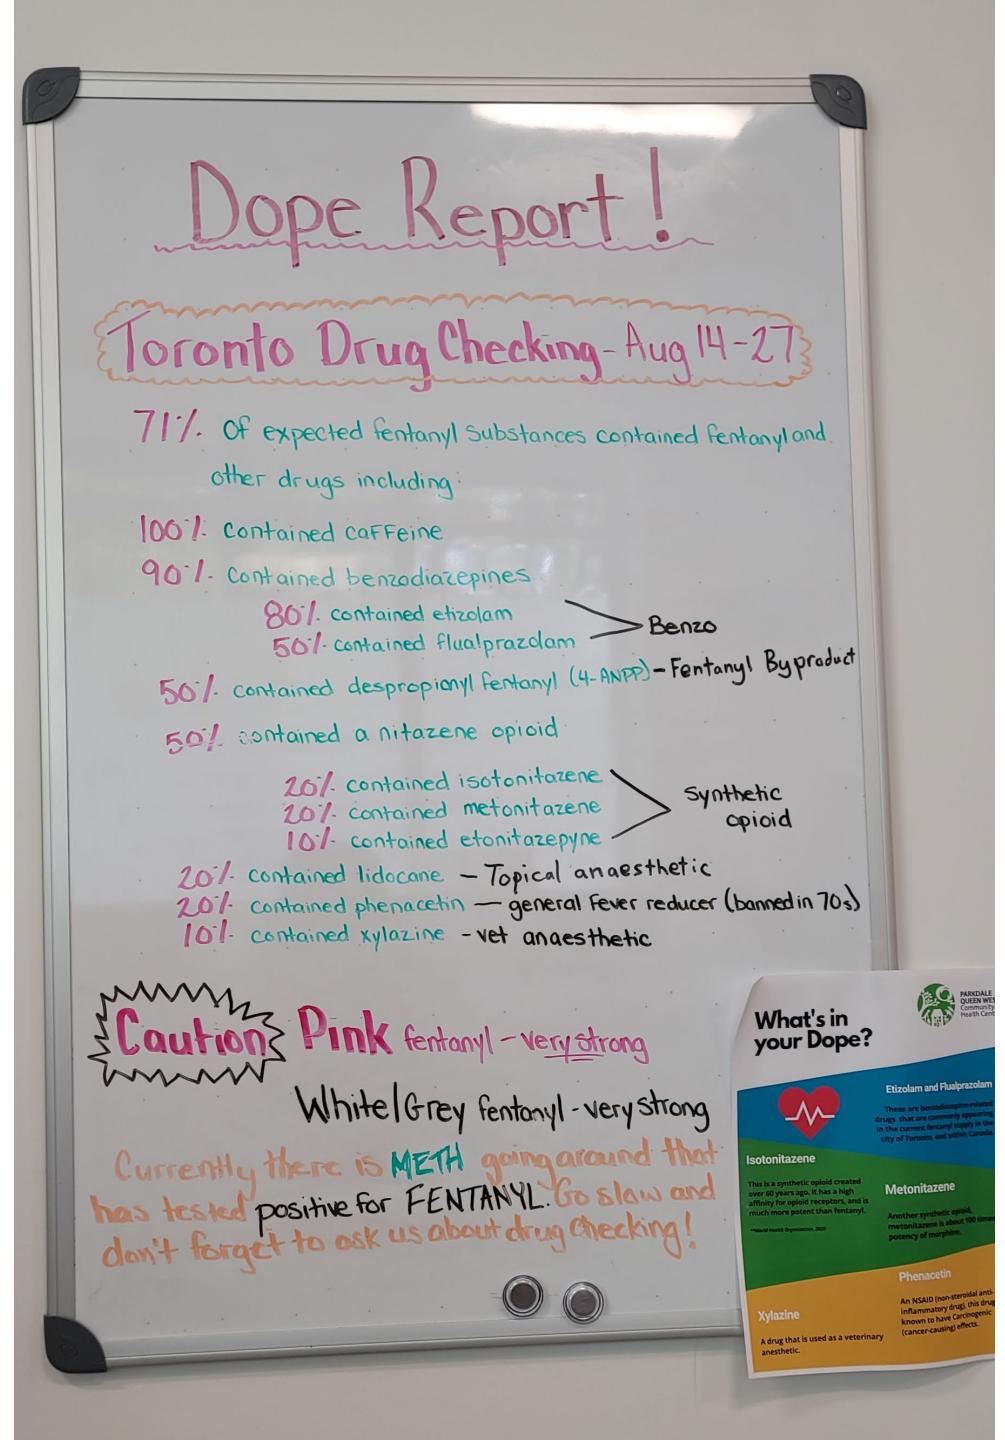 Dope Report!
Toronto Drug Checking - Aug 14-27
71% of expected fentanyl substances contained fentanyl and
other drugs including:
100% contained caffeine
90% contained benzodiazepines
80% contained etizolam
50% contained flualprazolam
Benzo
50% contained despropionyl fentanyl (4-ANPP) - Fentanyl Byproduct
50% contained a nitazene opioid
20% contained isotonitazene
20% contained metonitazene
10% contained etonitazepyne
Synthetic
opioid
20% contained lidocane - Topical anaesthetic
20% contained phenacetin - general fever reducer (banned in 70s)
10% contained xylazine - vet anaesthetic
Caution Pink fentanyl - very strong
White/Grey fentanyl - very strong
Currently there is METH going around that
has tested positive for FENTANYL. Go slow and
don't forget to ask us about drug checking!
PARKDALE
QUEEN WES
Community
Health Cent
What's in
your Dope?
Etizolam and Flualprazolam
These are benzodiazepine-related
drugs that are commonly appearing
in the current fentanyl supply in the
city of Toronto, and within Canada.
Isotonitazene
This is a synthetic opioid created
over 60 years ago. It has a high
affinity for opioid receptors, and is
much more potent than fentanyl.
**World Health Organization, 2020
Metonitazene
Another synthetic opioid,
metonitazene is about 100 times
potency of morphine.
Phenacetin
An NSAID (non-steroidal anti-
inflammatory drug), this drug
known to have Carcinogenic
(cancer-causing) effects.
Xylazine
A drug that is used as a veterinary
anesthetic.